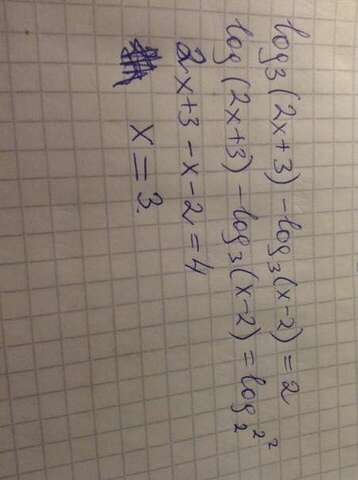 log₃(2x+3) - log₃(x-2) = 2
log(2x+3) - log₃(x-2) = log₂2²
2x+3-x-2=4
x=3.